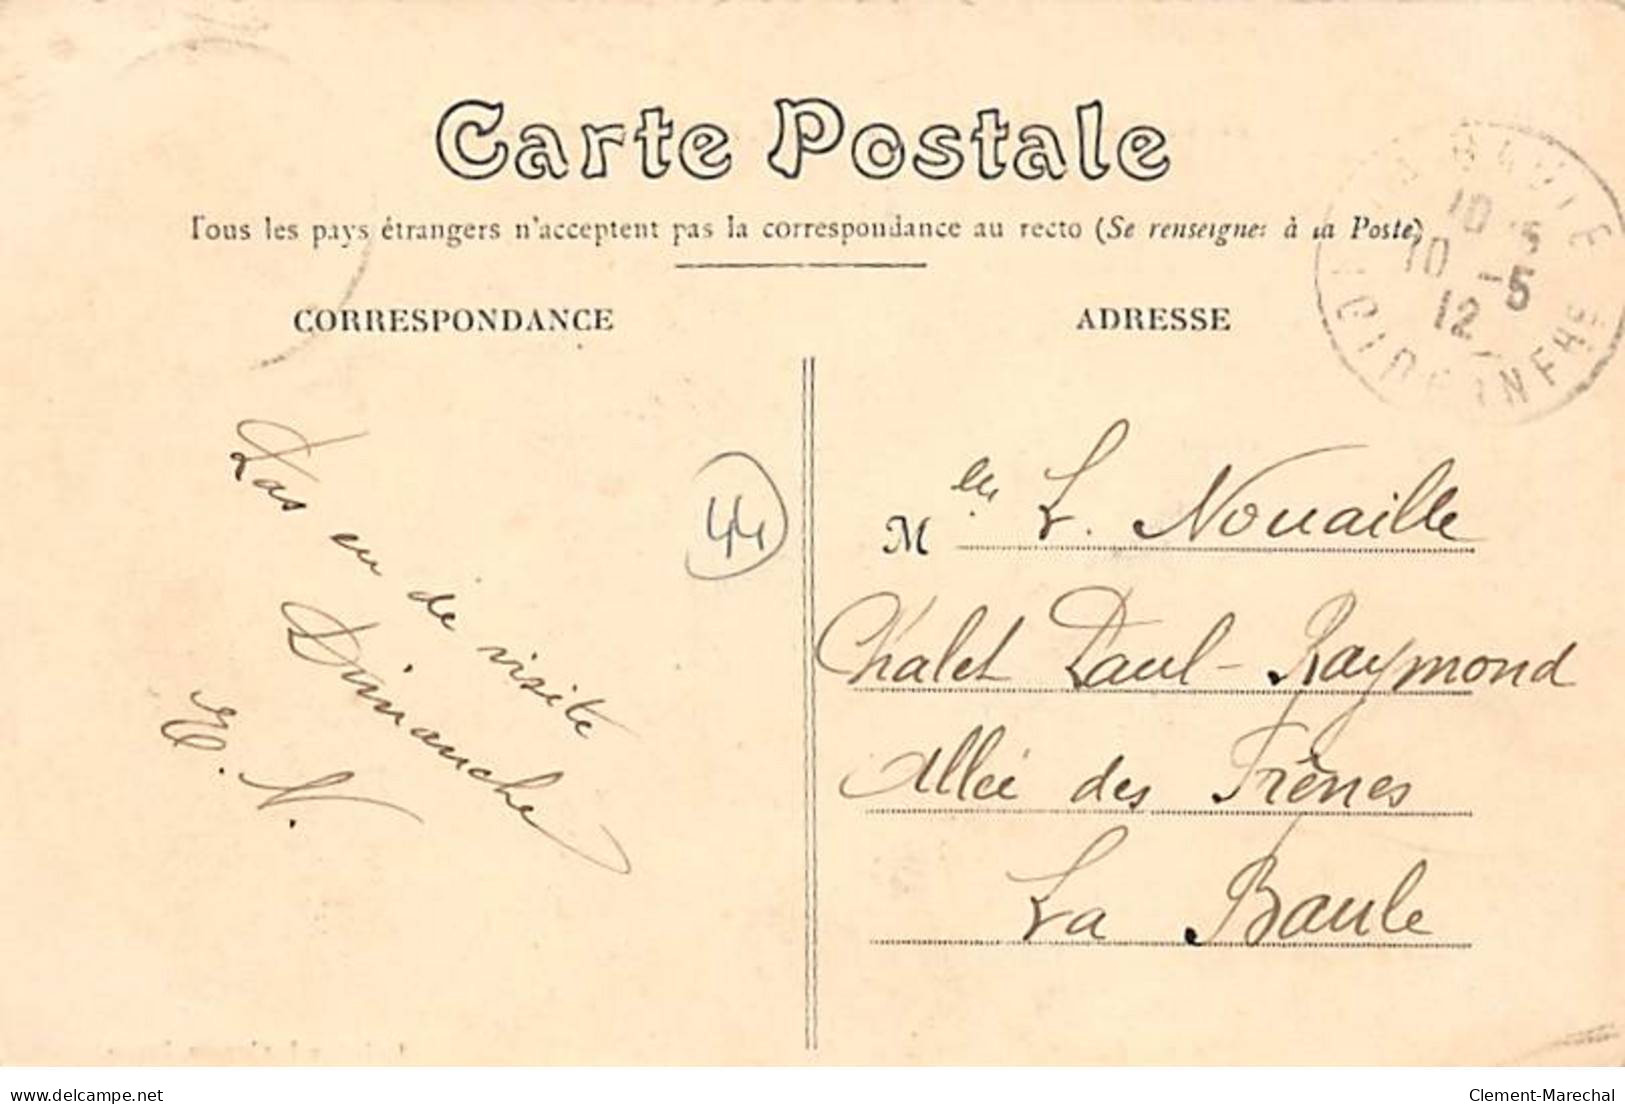 Carte Postale
Tous les pays étrangers n'acceptent pas la correspondance au recto (Se renseigner à la Poste)
CORRESPONDANCE
ADRESSE
10 15
10 -5
12
Pas eu de visite
Dimanche
E. N.
44
M elle L. Nouaille
Chalet Paul-Raymond
Allée des Frênes
La Baule
delcampe.net
Clement-Marechal